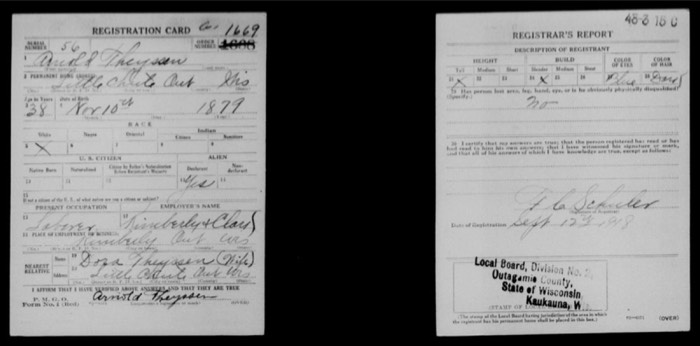 REGISTRATION CARD No. 1669
SERIAL NUMBER 56 ORDER NUMBER
1 Arnold Theyssen
2 PERMANENT HOME ADDRESS:
Little Chute Out Wis
Age in Years Date of Birth
38 Nov 10th 1879
RACE
White Negro Oriental Indian
Citizen Noncitizen
X
U. S. CITIZEN ALIEN
Native Born Naturalized Citizen by Father's Naturalization Before Registrant's Majority Declarant Non-declarant
Yes
If not a citizen of the U. S., of what nation are you a citizen or subject?
PRESENT OCCUPATION EMPLOYER'S NAME
Laborer Kimberly & Clark
PLACE OF EMPLOYMENT OR BUSINESS:
Kimberly Out Wis
NEAREST RELATIVE Name Dora Theyssen (Wife)
Address Little Chute Out Wis
I AFFIRM THAT I HAVE VERIFIED ABOVE ANSWERS AND THAT THEY ARE TRUE
P. M. G. O.
Form No. 1 (Red) Arnold Theyssen
48-3 18 C
REGISTRAR'S REPORT
DESCRIPTION OF REGISTRANT
HEIGHT BUILD COLOR OF EYES COLOR OF HAIR
Tall Medium Short Slender Medium Stout
X X Blue
29 Has person lost arm, leg, hand, eye, or is he obviously physically disqualified?
(Specify.)
no
30 I certify that my answers are true; that the person registered has read or has
had read to him his own answers; that I have witnessed his signature or mark,
and that all of his answers of which I have knowledge are true, except as follows:
Date of Registration Sept 12th 1918
Local Board, Division No. 2,
Outagamie County,
State of Wisconsin
Kaukauna, W
(The stamp of the Local Board having jurisdiction of the area in which
the registrant has his permanent home shall be placed in this box.)
(OVER)